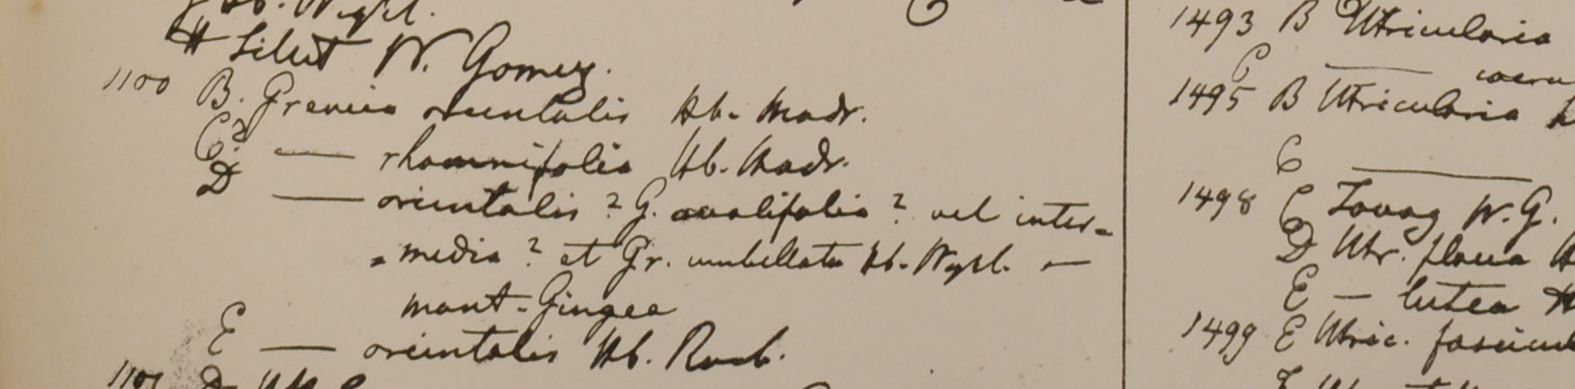 H Silet W. Gomez.
1100 B. Grewia orientalis Hb. Madr.
C. — rhamnifolia Hb. Madr.
D — orientalis? G. ovalifolia? vel inter-
-media? et Gr. umbellata Hb. Wight. —
mont. Gingee
E — orientalis Hb. Roxb.
1101 D
1493 B Utricularia
C — coeru
1495 B Utricularia
C —
1498 C Tavoy W. G.
D Utr. flava H
E — lutea H
1499 E Utric. fascicul